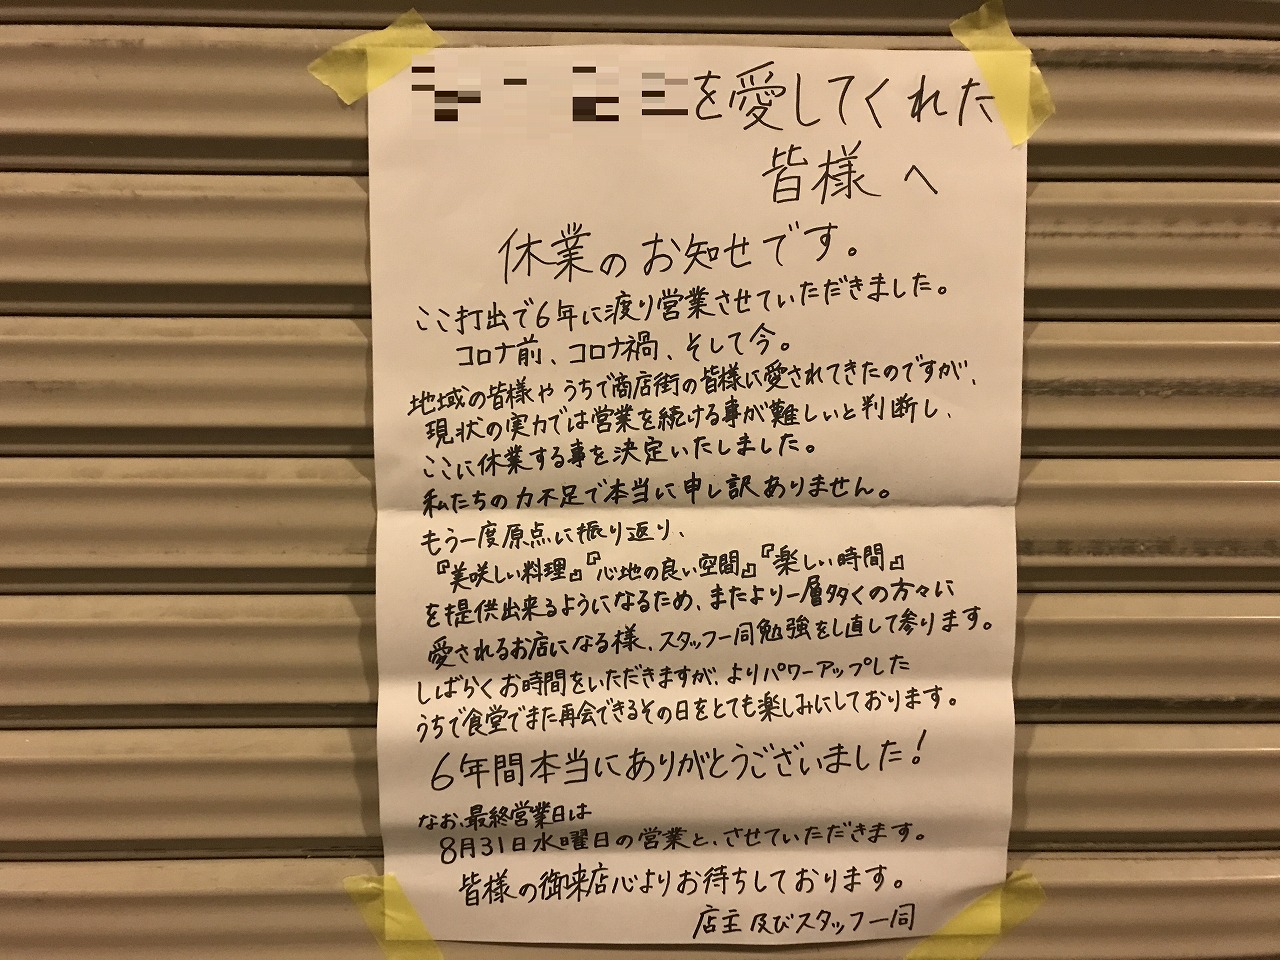 を愛してくれた
皆様へ
休業のお知せです。
ここ打出で6年に渡り営業させていただきました。
コロナ前、コロナ禍、そして今。
地域の皆様やうちで商店街の皆様に愛されてきたのですが、
現状の実力では営業を続ける事が難しいと判断し、
ここに休業する事を決定いたしました。
私たちの力不足で本当に申し訳ありません。
もう一度原点に振り返り、
『美味しい料理』『心地の良い空間』『楽しい時間』
を提供出来るようになるため、またより一層多くの方々に
愛されるお店になる様、スタッフ一同勉強をし直して参ります。
しばらくお時間をいただきますが、よりパワーアップした
うちで食堂でまた再会できるその日をとても楽しみにしております。
6年間本当にありがとうございました!
なお、最終営業日は
8月31日水曜日の営業と、させていただきます。
皆様の御来店心よりお待ちしております。
店主及びスタッフ一同